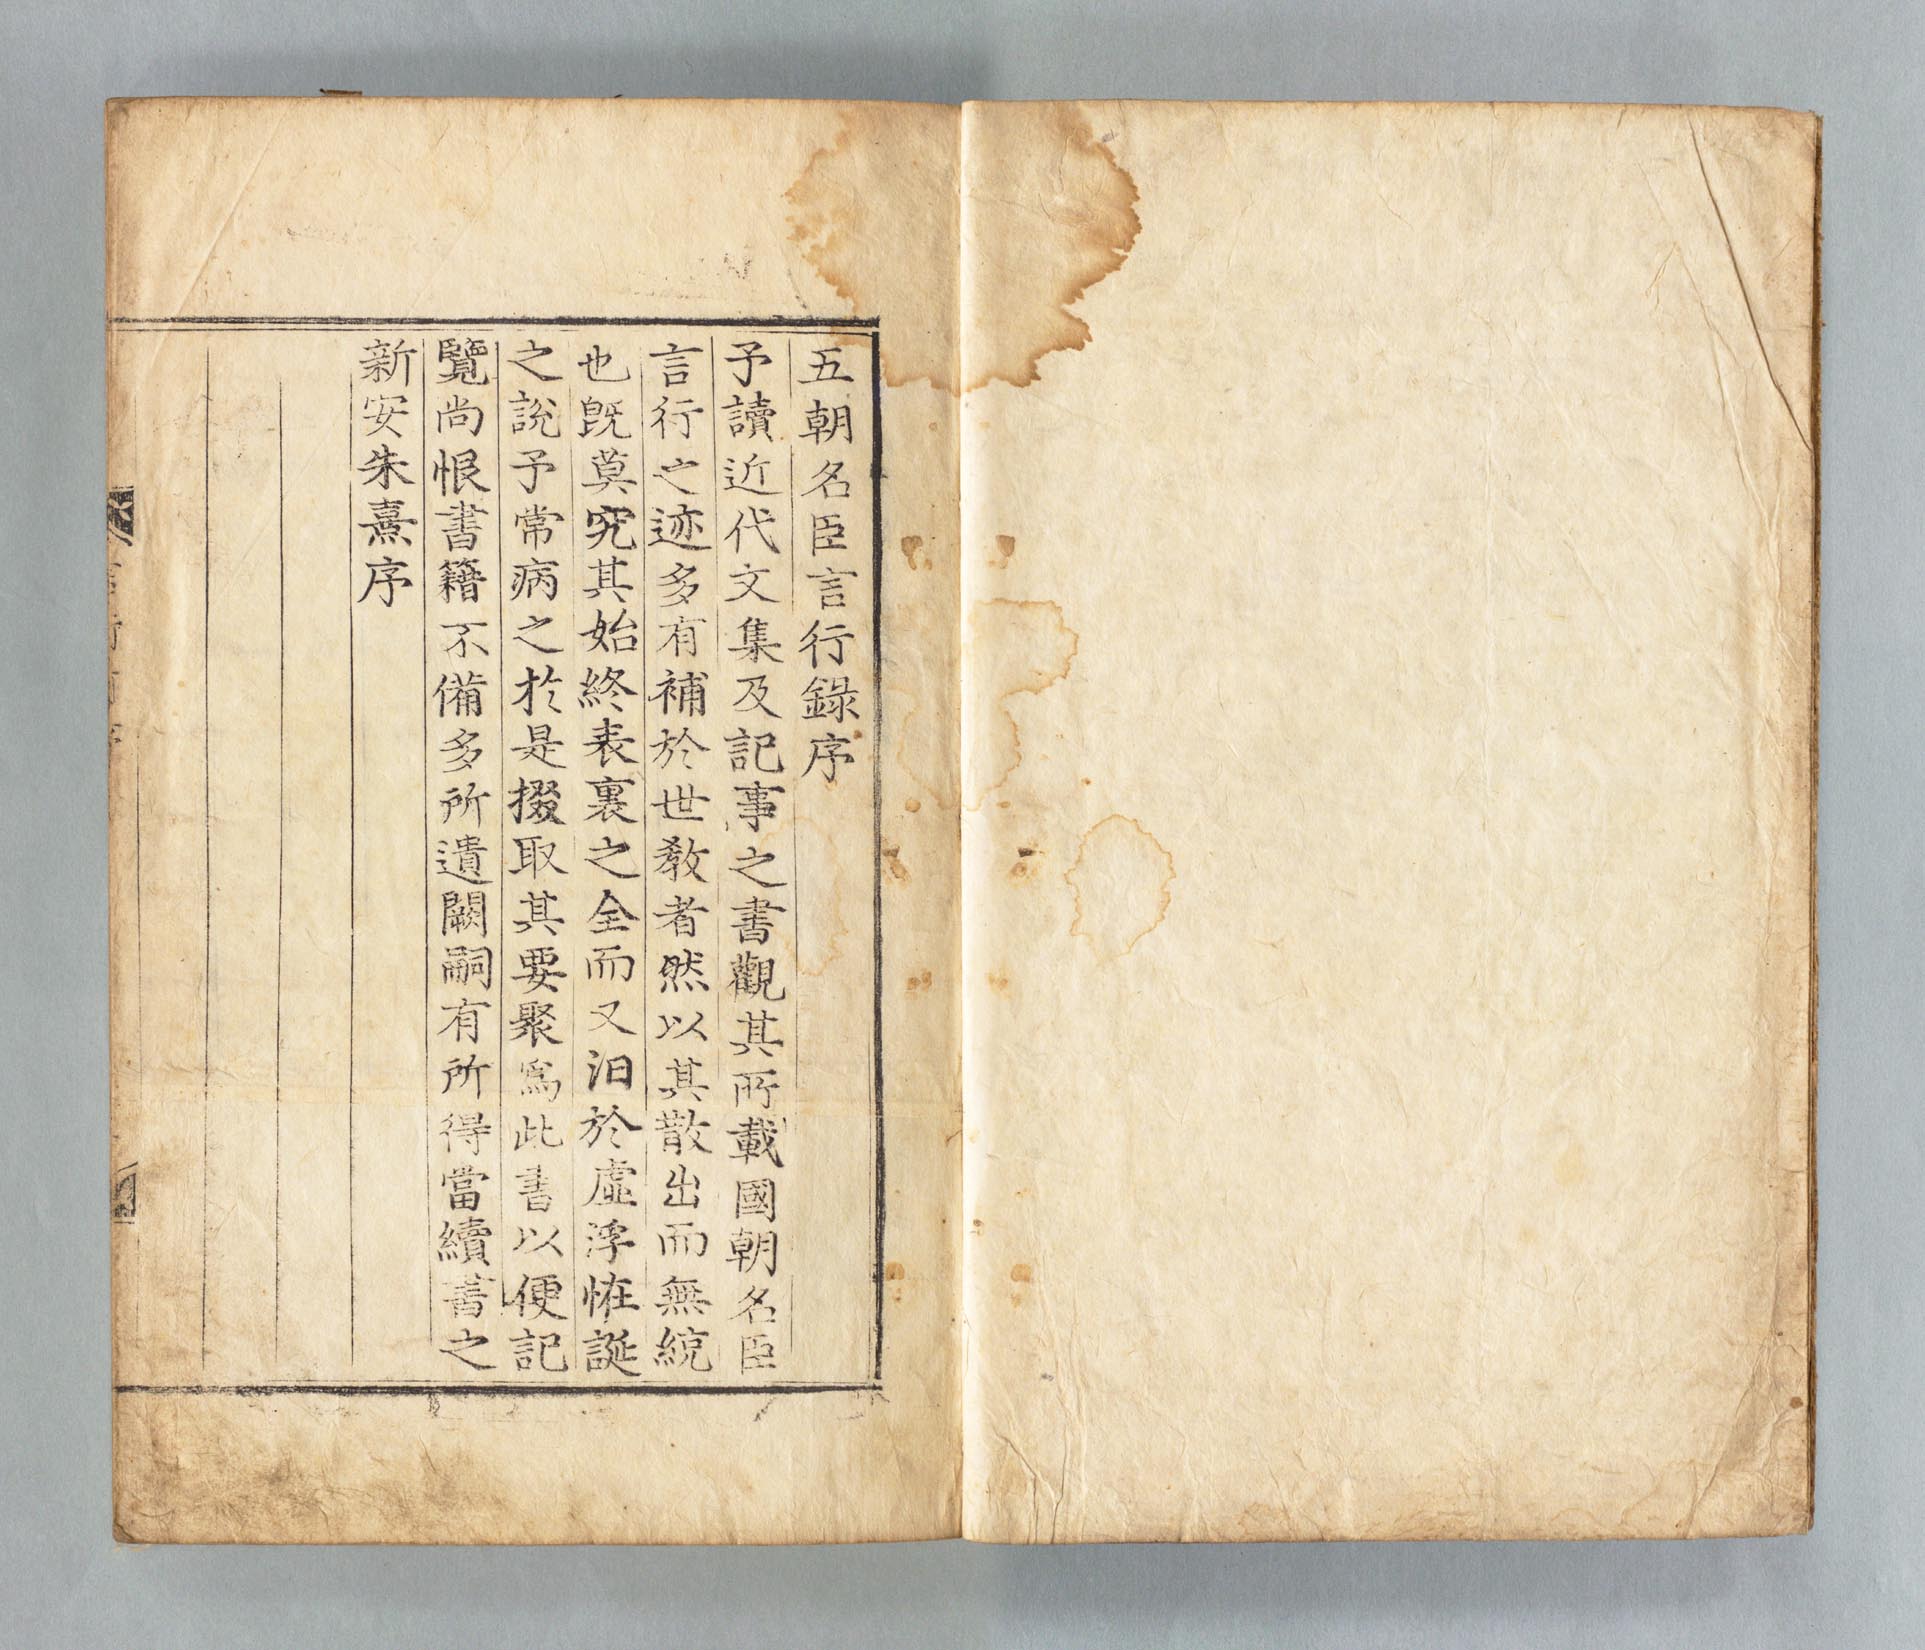 五朝名臣言行錄序
予讀近代文集及記事之書觀其所載國朝名臣
言行之迹多有補於世教者然以其散出而無統
也旣莫究其始終表裏之全而又汨於虛浮恠誕
之說予常病之於是掇取其要聚爲此書以便記
覽尚恨書籍不備多所遺闕嗣有所得當續書之
新安朱熹序